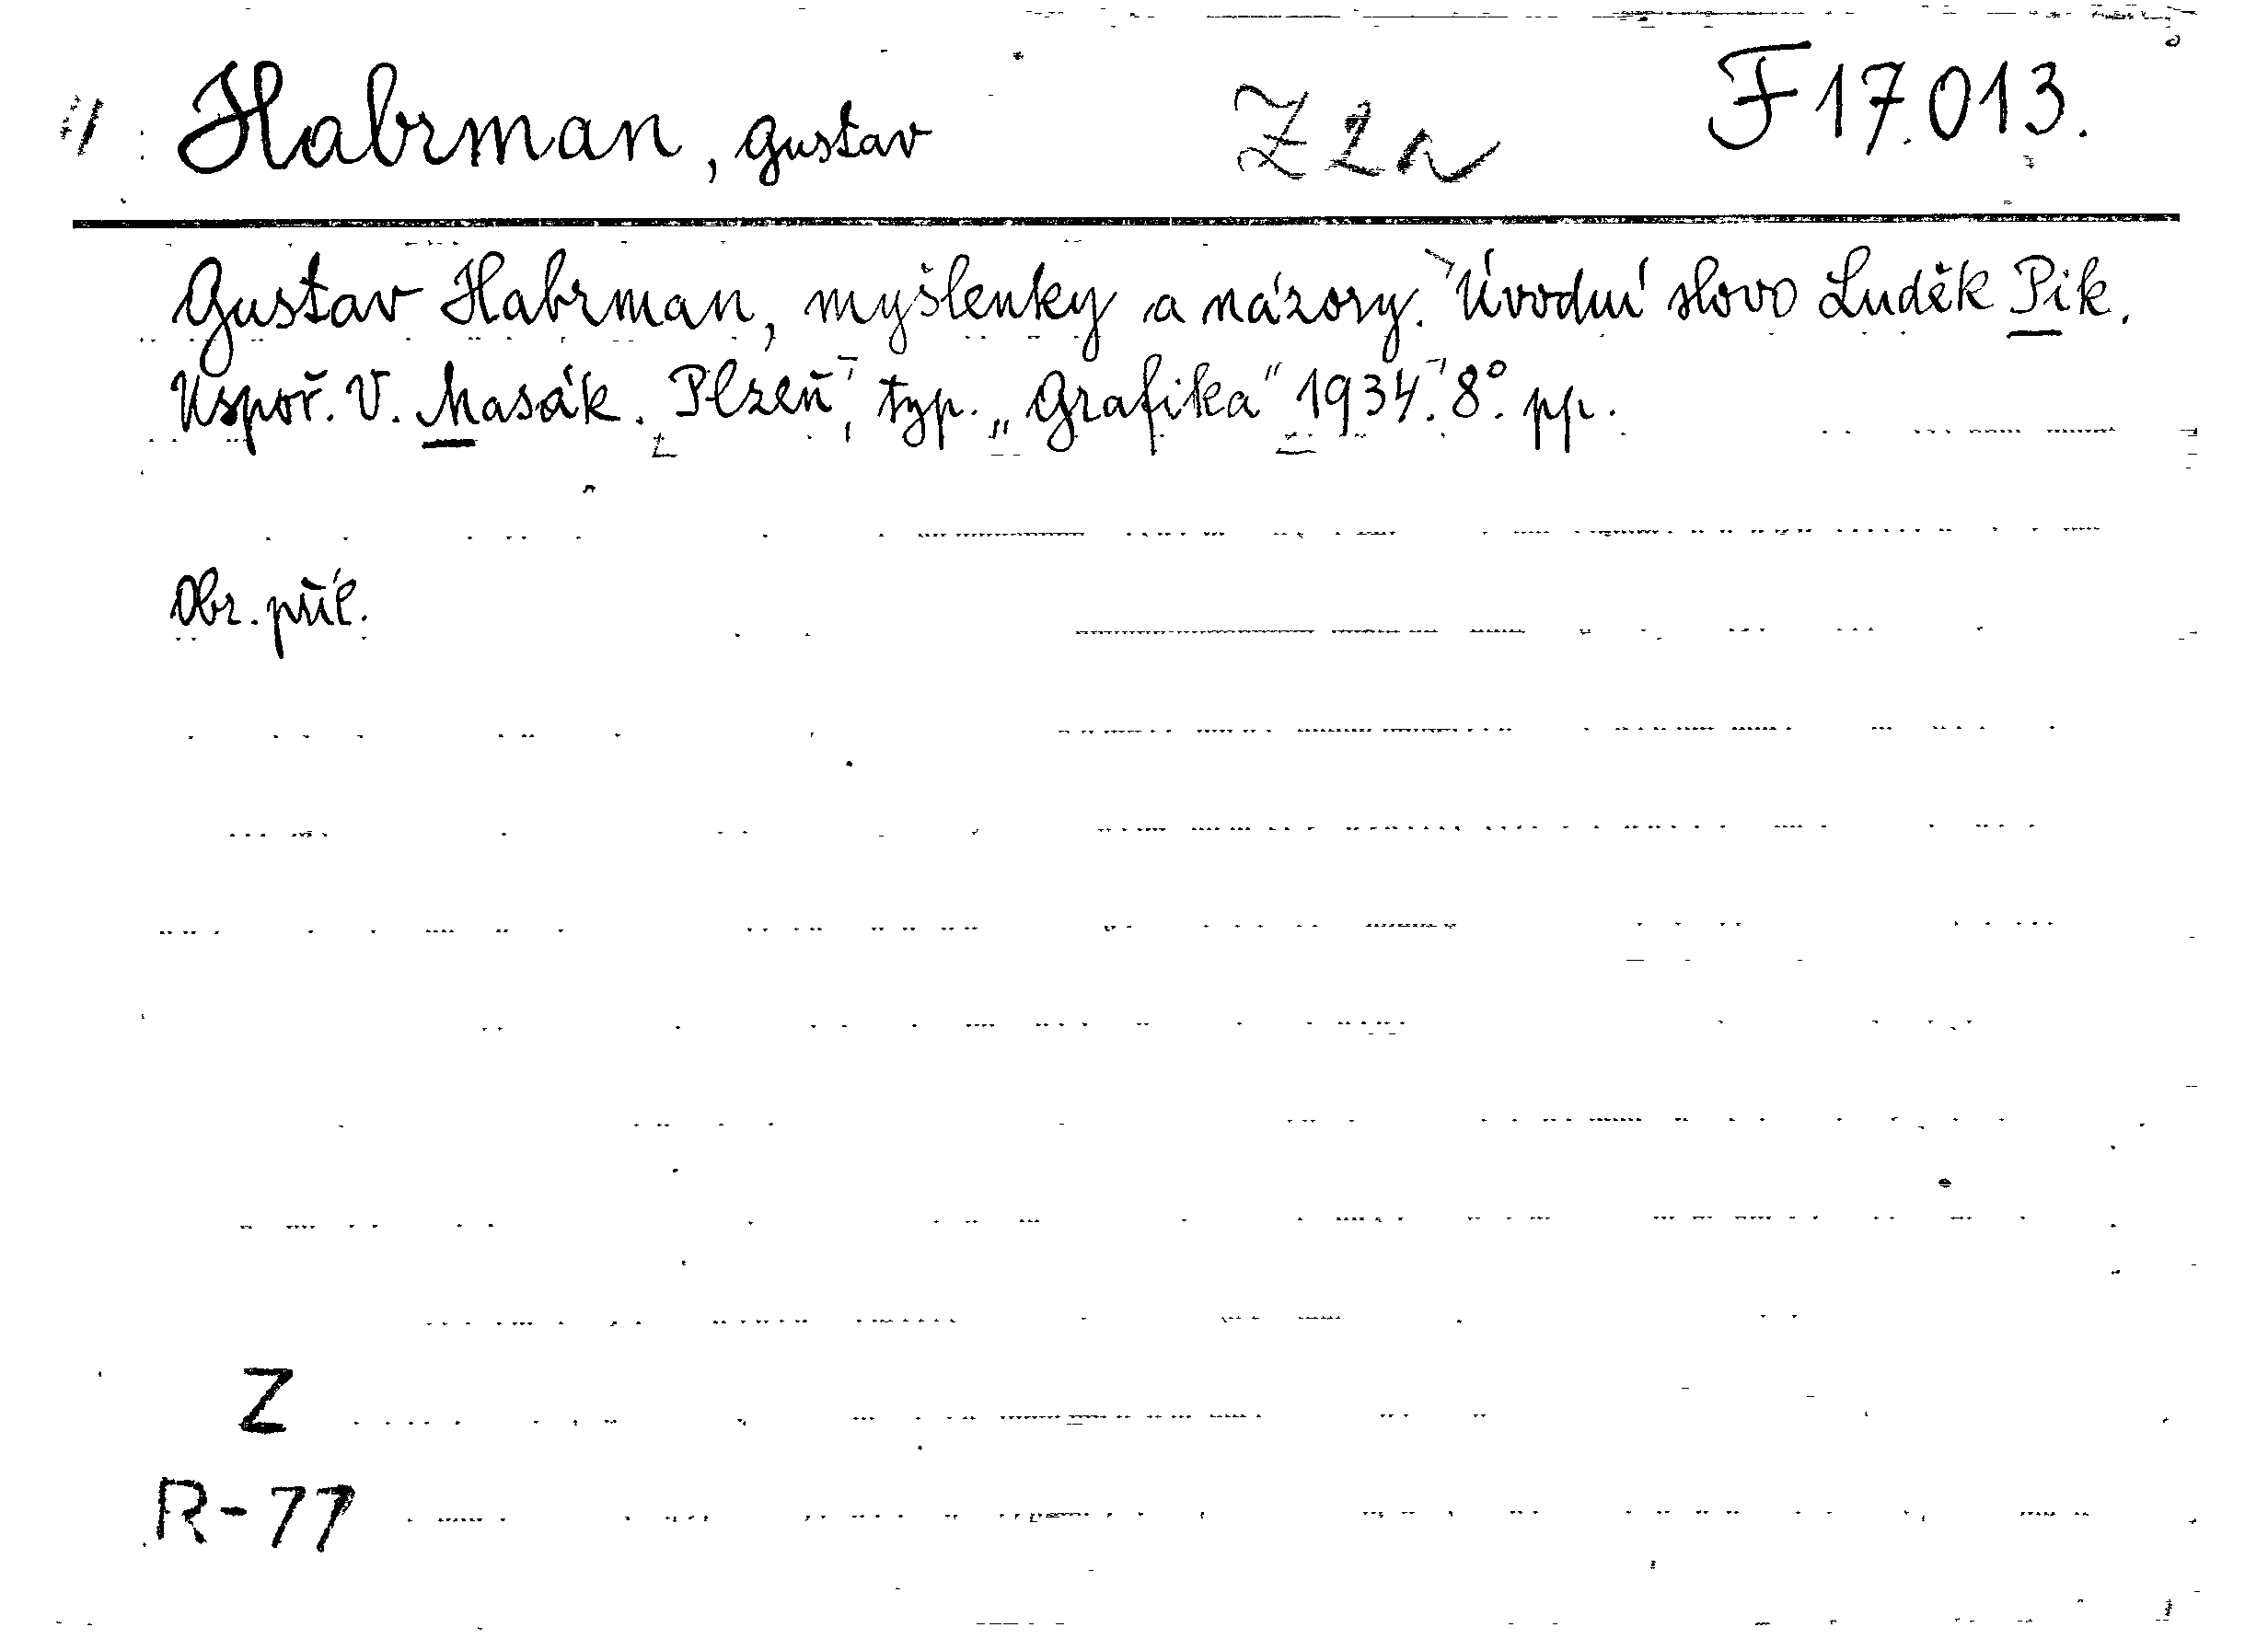 Habrman, Gustav Z 2a F 17.013.
Gustav Habrman, myšlenky a názory. Úvodní slovo Luděk Pik.
Uspoř. V. Masák. Plzeň, typ. „Grafika" 1934. 8°. pp.
Obr. příl.
Z
R-77